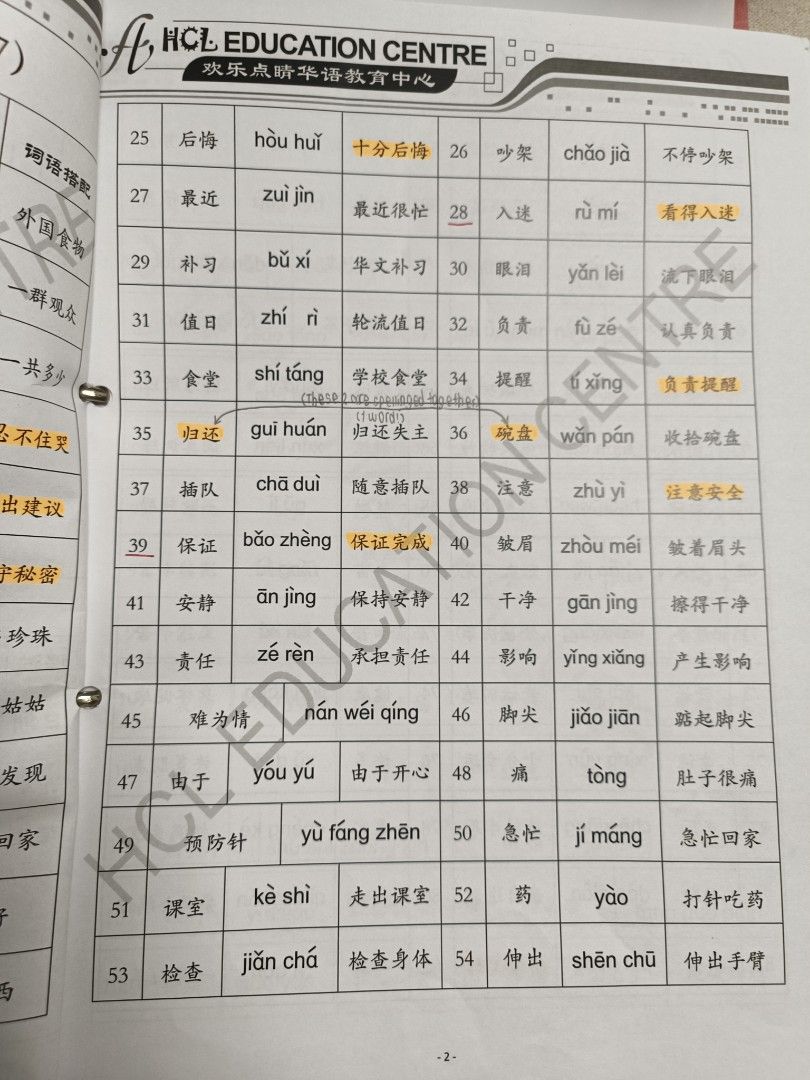 HCL EDUCATION CENTRE
欢乐点睛华语教育中心
7)
词语搭配
外国食物
一群观众
一共多少
忍不住哭
出建议
守秘密
珍珠
姑姑
发现
回家
西
25 后悔 hòu huǐ 十分后悔 26 吵架 chǎo jià 不停吵架
27 最近 zuì jìn 最近很忙 28 入迷 rù mí 看得入迷
29 补习 bǔ xí 华文补习 30 眼泪 yǎn lèi 流下眼泪
31 值日 zhí rì 轮流值日 32 负责 fù zé 认真负责
33 食堂 shí táng 学校食堂 34 提醒 tí xǐng 负责提醒
(These 2 are spellinged together)
(1 word!)
35 归还 guī huán 归还失主 36 碗盘 wǎn pán 收拾碗盘
37 插队 chā duì 随意插队 38 注意 zhù yì 注意安全
39 保证 bǎo zhèng 保证完成 40 皱眉 zhòu méi 皱着眉头
41 安静 ān jìng 保持安静 42 干净 gān jìng 擦得干净
43 责任 zé rèn 承担责任 44 影响 yǐng xiǎng 产生影响
45 难为情 nán wéi qíng 46 脚尖 jiǎo jiān 踮起脚尖
47 由于 yóu yú 由于开心 48 痛 tòng 肚子很痛
49 预防针 yù fáng zhēn 50 急忙 jí máng 急忙回家
51 课室 kè shì 走出课室 52 药 yào 打针吃药
53 检查 jiǎn chá 检查身体 54 伸出 shēn chū 伸出手臂
HCL EDUCATION CENTRE
- 2 -